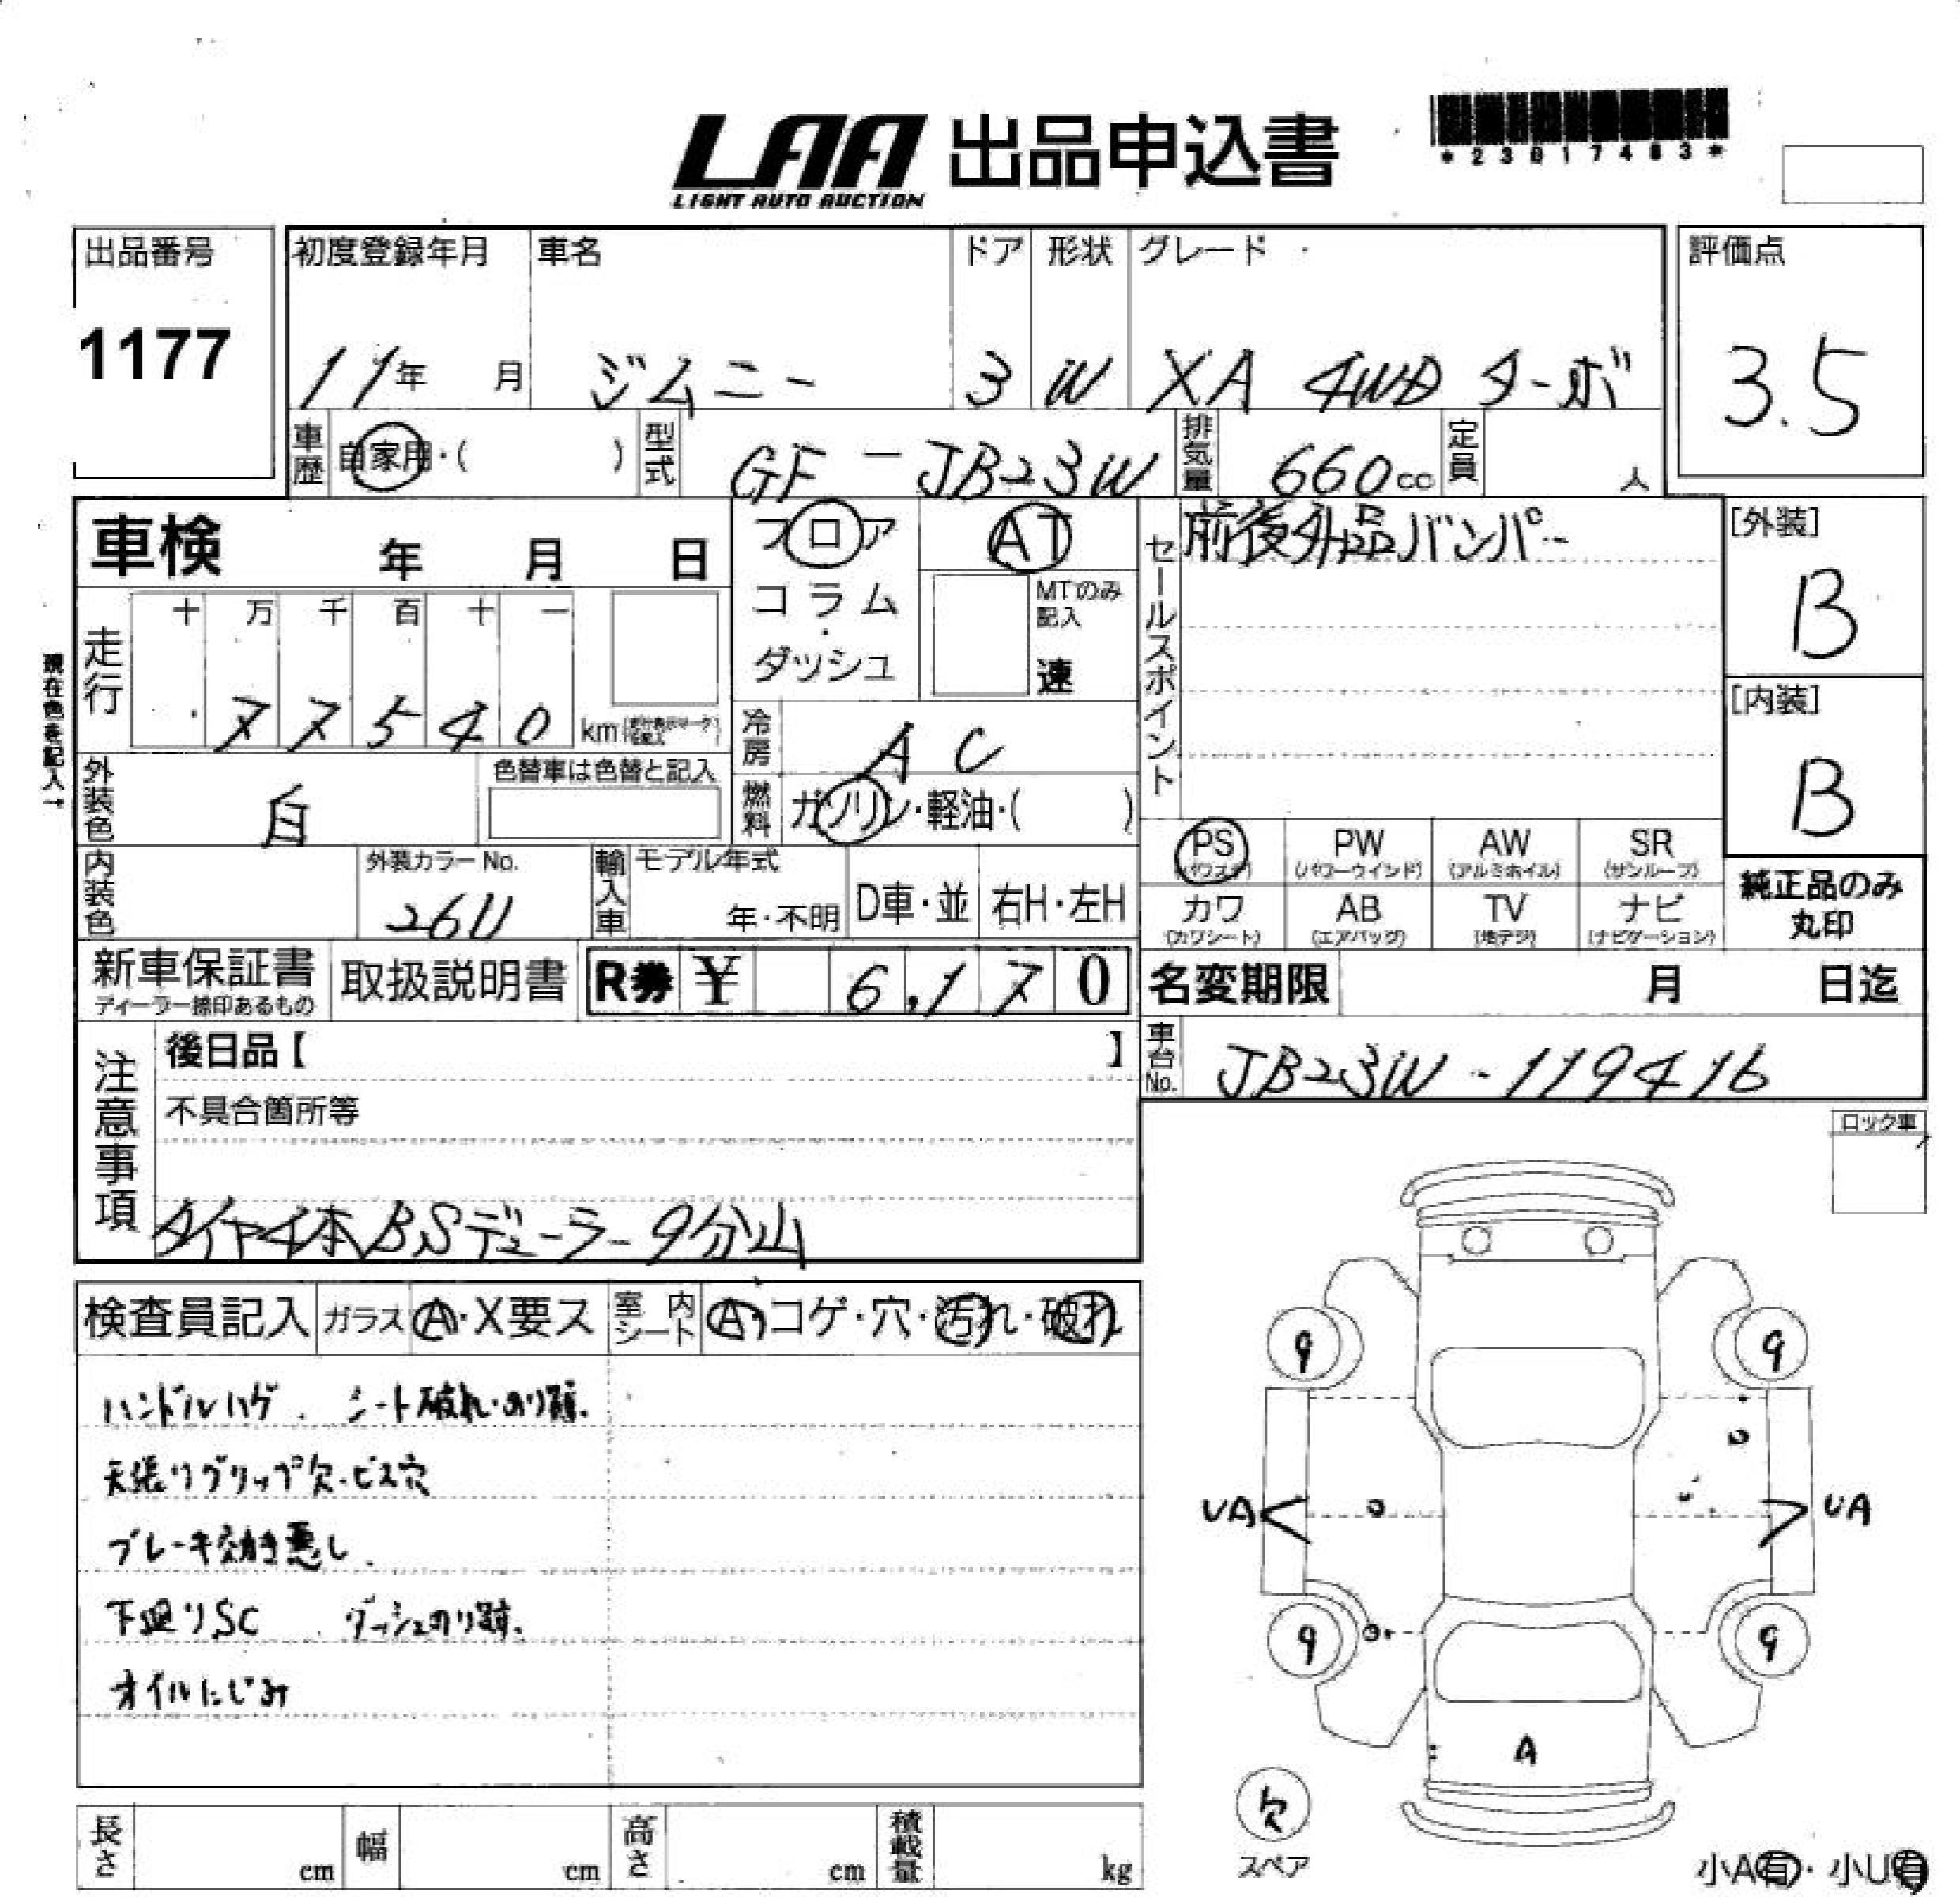 LAA 出品申込書
LIGHT AUTO AUCTION
*23017483*
出品番号
1177
初度登録年月
11年 月
車名
ジムニー
ドア
3
形状
W
グレード
XA 4WD ターボ
評価点
3.5
車歴 自家用・( )
型式 GF-JB23W
排気量 660cc
定員 人
車検 年 月 日
フロア AT
コラム・ダッシュ
MTのみ記入 速
セールスポイント
前後外品バンパー
[外装]
B
[内装]
B
走行 十 万 千 百 十 一
77540 km
現在色を記入→
冷房 AC
外装色 白
色替車は色替と記入
燃料 ガソリン・軽油・( )
PS (パワステ) PW (パワーウインド) AW (アルミホイル) SR (サンルーフ)
カワ (カワシート) AB (エアバッグ) TV (地デジ) ナビ (ナビゲーション)
純正品のみ
丸印
内装色
外装カラーNo.
26U
輸入車 モデル年式
年・不明 D車・並 右H・左H
新車保証書
ディーラー捺印あるもの
取扱説明書
R券 ¥ 6,170
名変期限 月 日迄
車台No. JB23W-119416
注意事項
後日品【 】
不具合箇所等
タイヤ4本BSデューラー9分山
ロック車
検査員記入 ガラス A・X要ス 室内シート A・コゲ・穴・汚れ・破れ
ハンドルハゲ . シート破れ・のり跡.
天張りグリップ欠・ビス穴
ブレーキ効き悪し.
下廻りSC . ダッシュのり跡.
オイルにじみ
9 9
UA UA
9 9
A
欠
スペア
小A有・小U有
長さ cm 幅 cm 高さ cm 積載量 kg